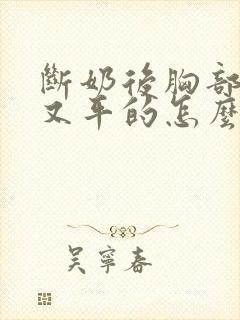 斷奶後胸部
又平的怎麼
吳寧春